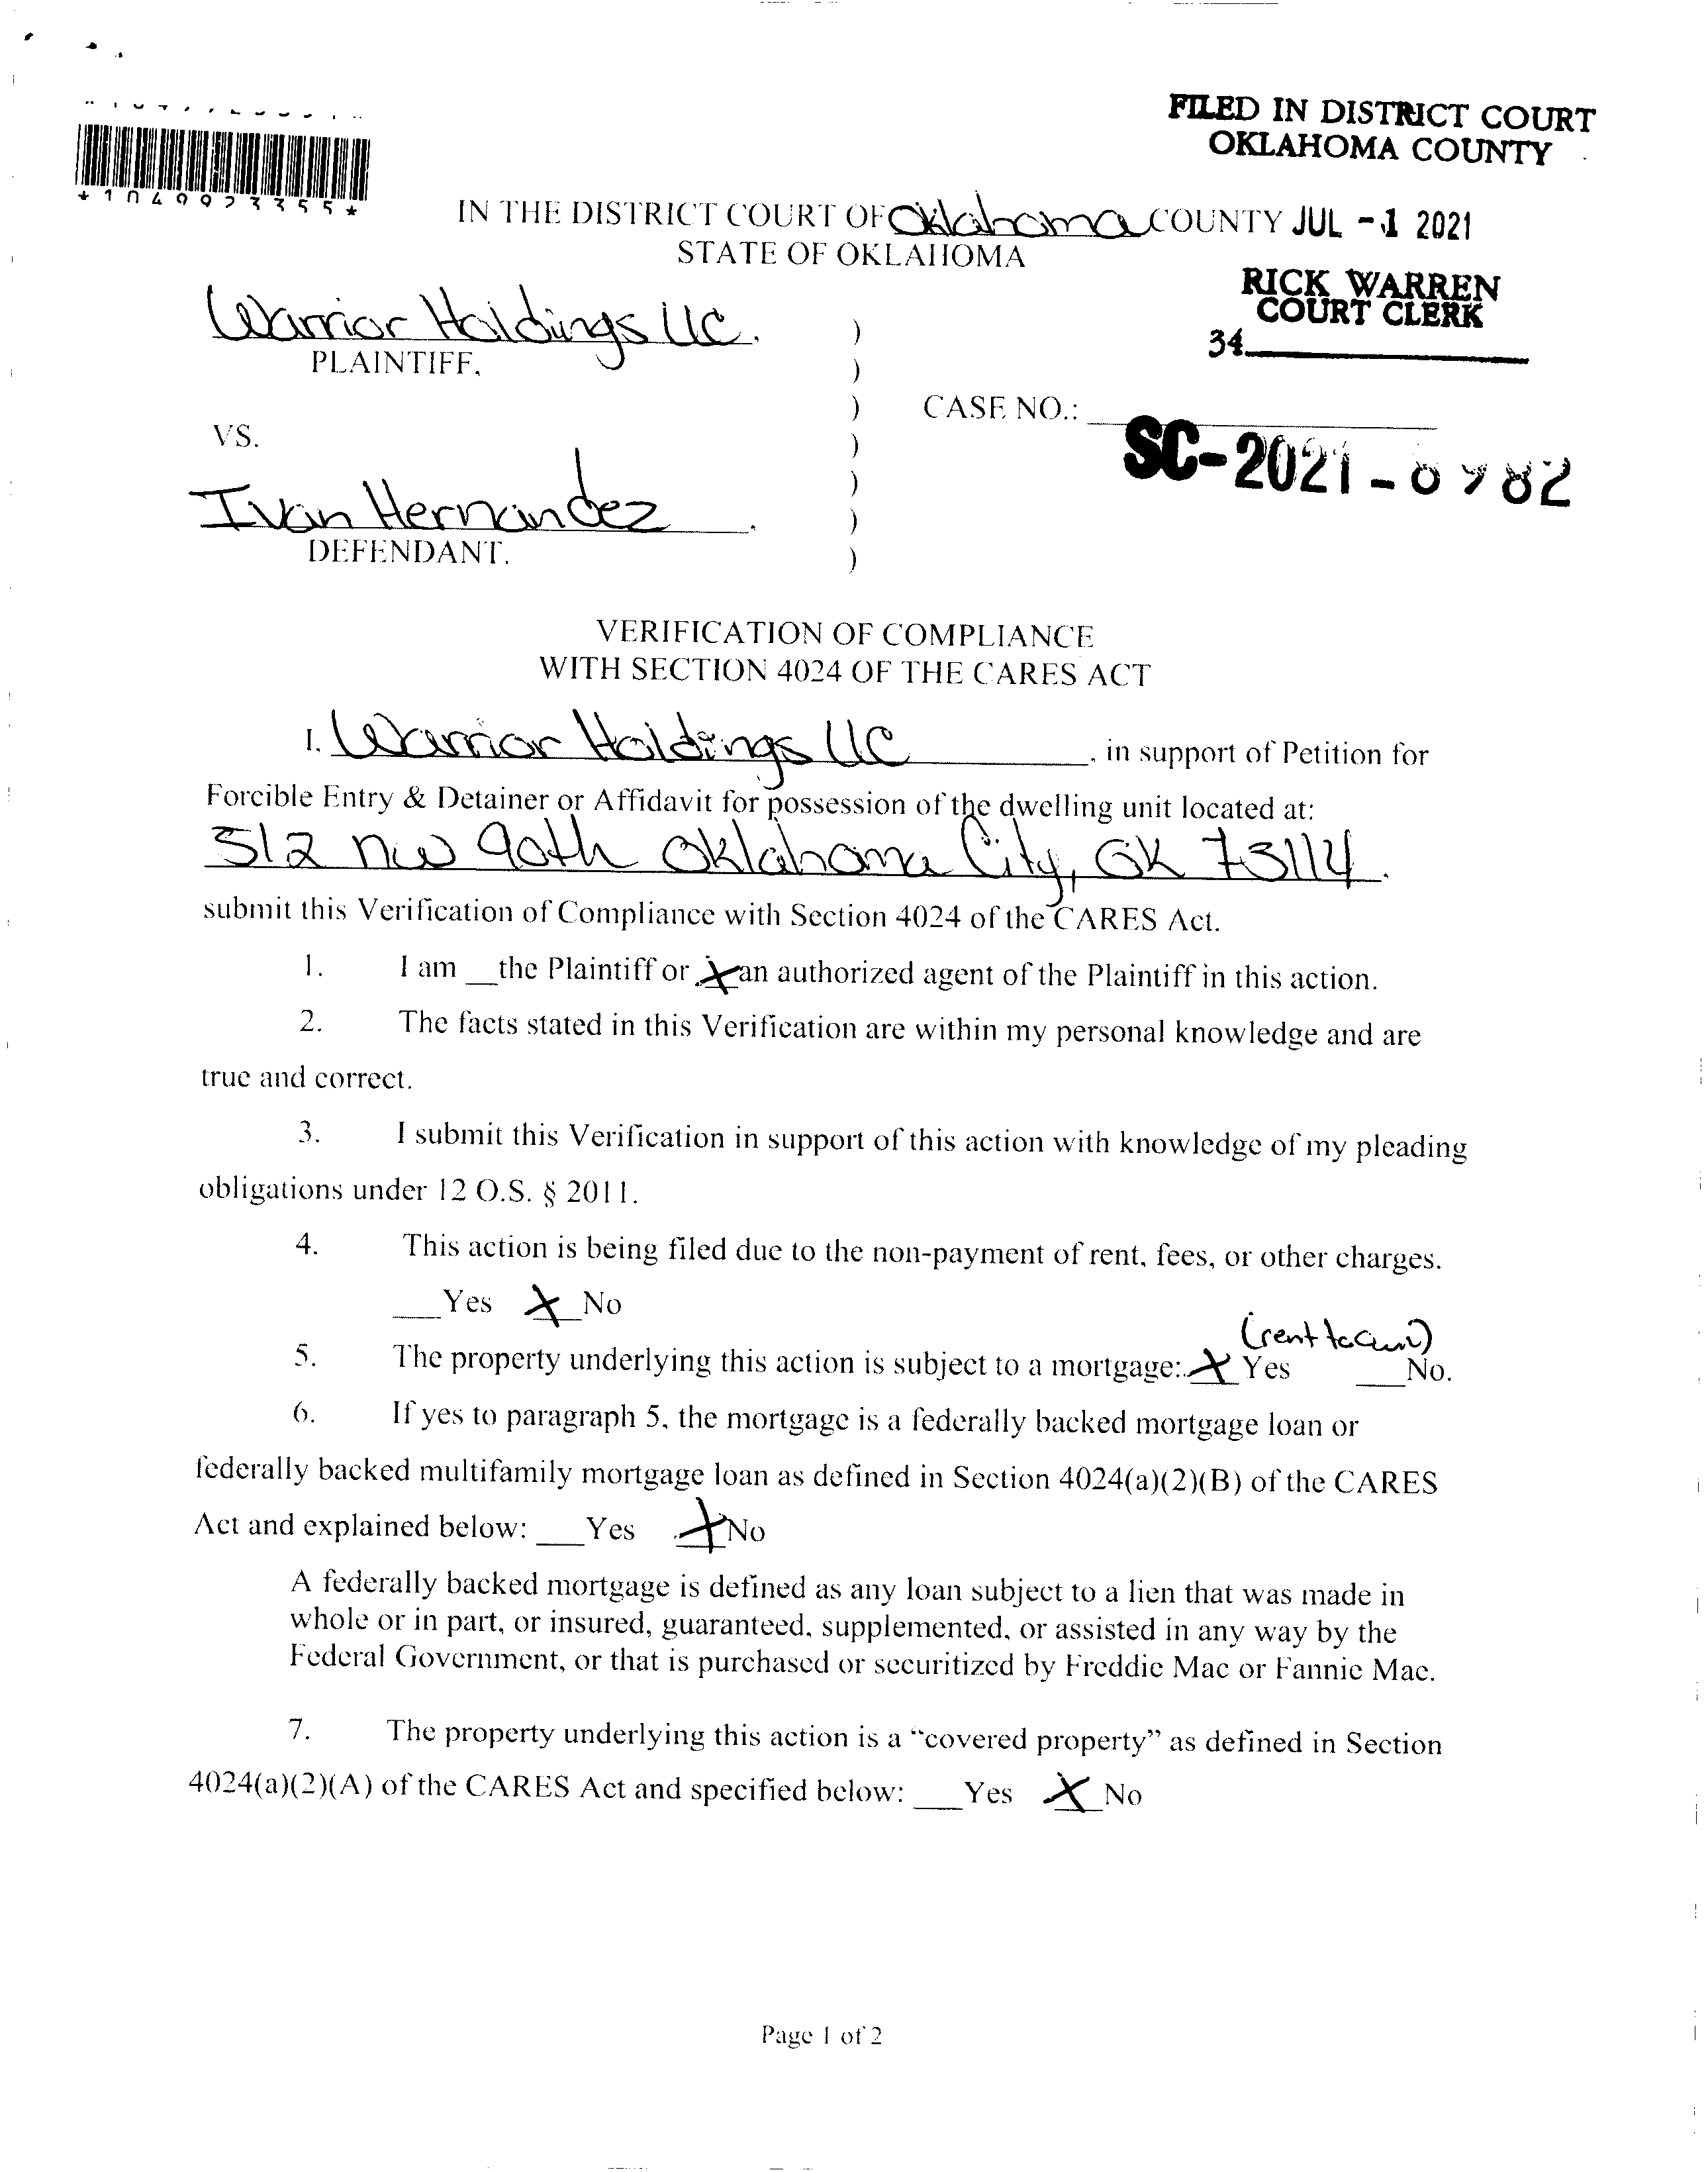 FILED IN DISTRICT COURT
OKLAHOMA COUNTY
*1049923355*
IN THE DISTRICT COURT OF Oklahoma COUNTY JUL -1 2021
STATE OF OKLAHOMA
RICK WARREN
COURT CLERK
34
Warrior Holdings LLC.
PLAINTIFF,
CASE NO.:
VS.
SC-2021-
Ivan Hernandez
DEFENDANT.
)
)
)
)
)
)
)
VERIFICATION OF COMPLIANCE
WITH SECTION 4024 OF THE CARES ACT
I. Warrior Holdings LLC, in support of Petition for
Forcible Entry & Detainer or Affidavit for possession of the dwelling unit located at:
512 NW 90th Oklahoma City, OK 73114.
submit this Verification of Compliance with Section 4024 of the CARES Act.
1. I am __the Plaintiff or X an authorized agent of the Plaintiff in this action.
2. The facts stated in this Verification are within my personal knowledge and are
true and correct.
3. I submit this Verification in support of this action with knowledge of my pleading
obligations under 12 O.S. § 2011.
4. This action is being filed due to the non-payment of rent, fees, or other charges.
___Yes X No
(rent to own)
5. The property underlying this action is subject to a mortgage: X Yes ___No.
6. If yes to paragraph 5, the mortgage is a federally backed mortgage loan or
federally backed multifamily mortgage loan as defined in Section 4024(a)(2)(B) of the CARES
Act and explained below: ___Yes X No
A federally backed mortgage is defined as any loan subject to a lien that was made in
whole or in part, or insured, guaranteed, supplemented, or assisted in any way by the
Federal Government, or that is purchased or securitized by Freddie Mac or Fannie Mae.
7. The property underlying this action is a “covered property” as defined in Section
4024(a)(2)(A) of the CARES Act and specified below: ___Yes X No
Page 1 of 2